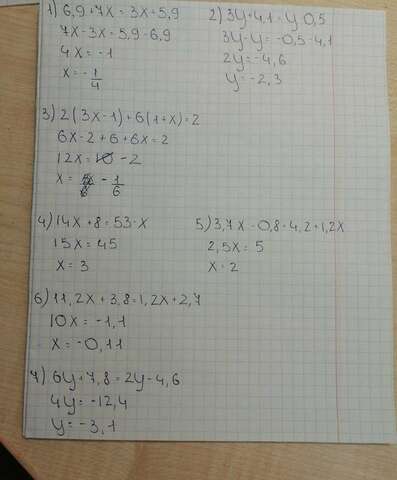 1) 6,9+7x=3x+5,9
7x-3x=5,9-6,9
4x=-1
x=-1/4
2) 3y+4,1=y-0,5
3y-y=-0,5-4,1
2y=-4,6
y=-2,3
3) 2(3x-1)+6(1+x)=2
6x-2+6+6x=2
12x=-2
x=-1/6
4) 14x+8=53-x
15x=45
x=3
5) 3,7x-0,8=4,2+1,2x
2,5x=5
x=2
6) 11,2x+3,8=1,2x+2,7
10x=-1,1
x=-0,11
7) 6y+7,8=2y-4,6
4y=-12,4
y=-3,1